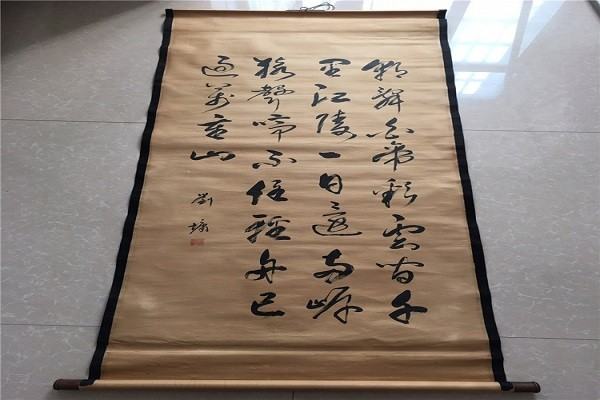 朝辭白帝彩雲間千
里江陵一日還兩岸
猿聲啼不住輕舟已
過萬重山
劉墉